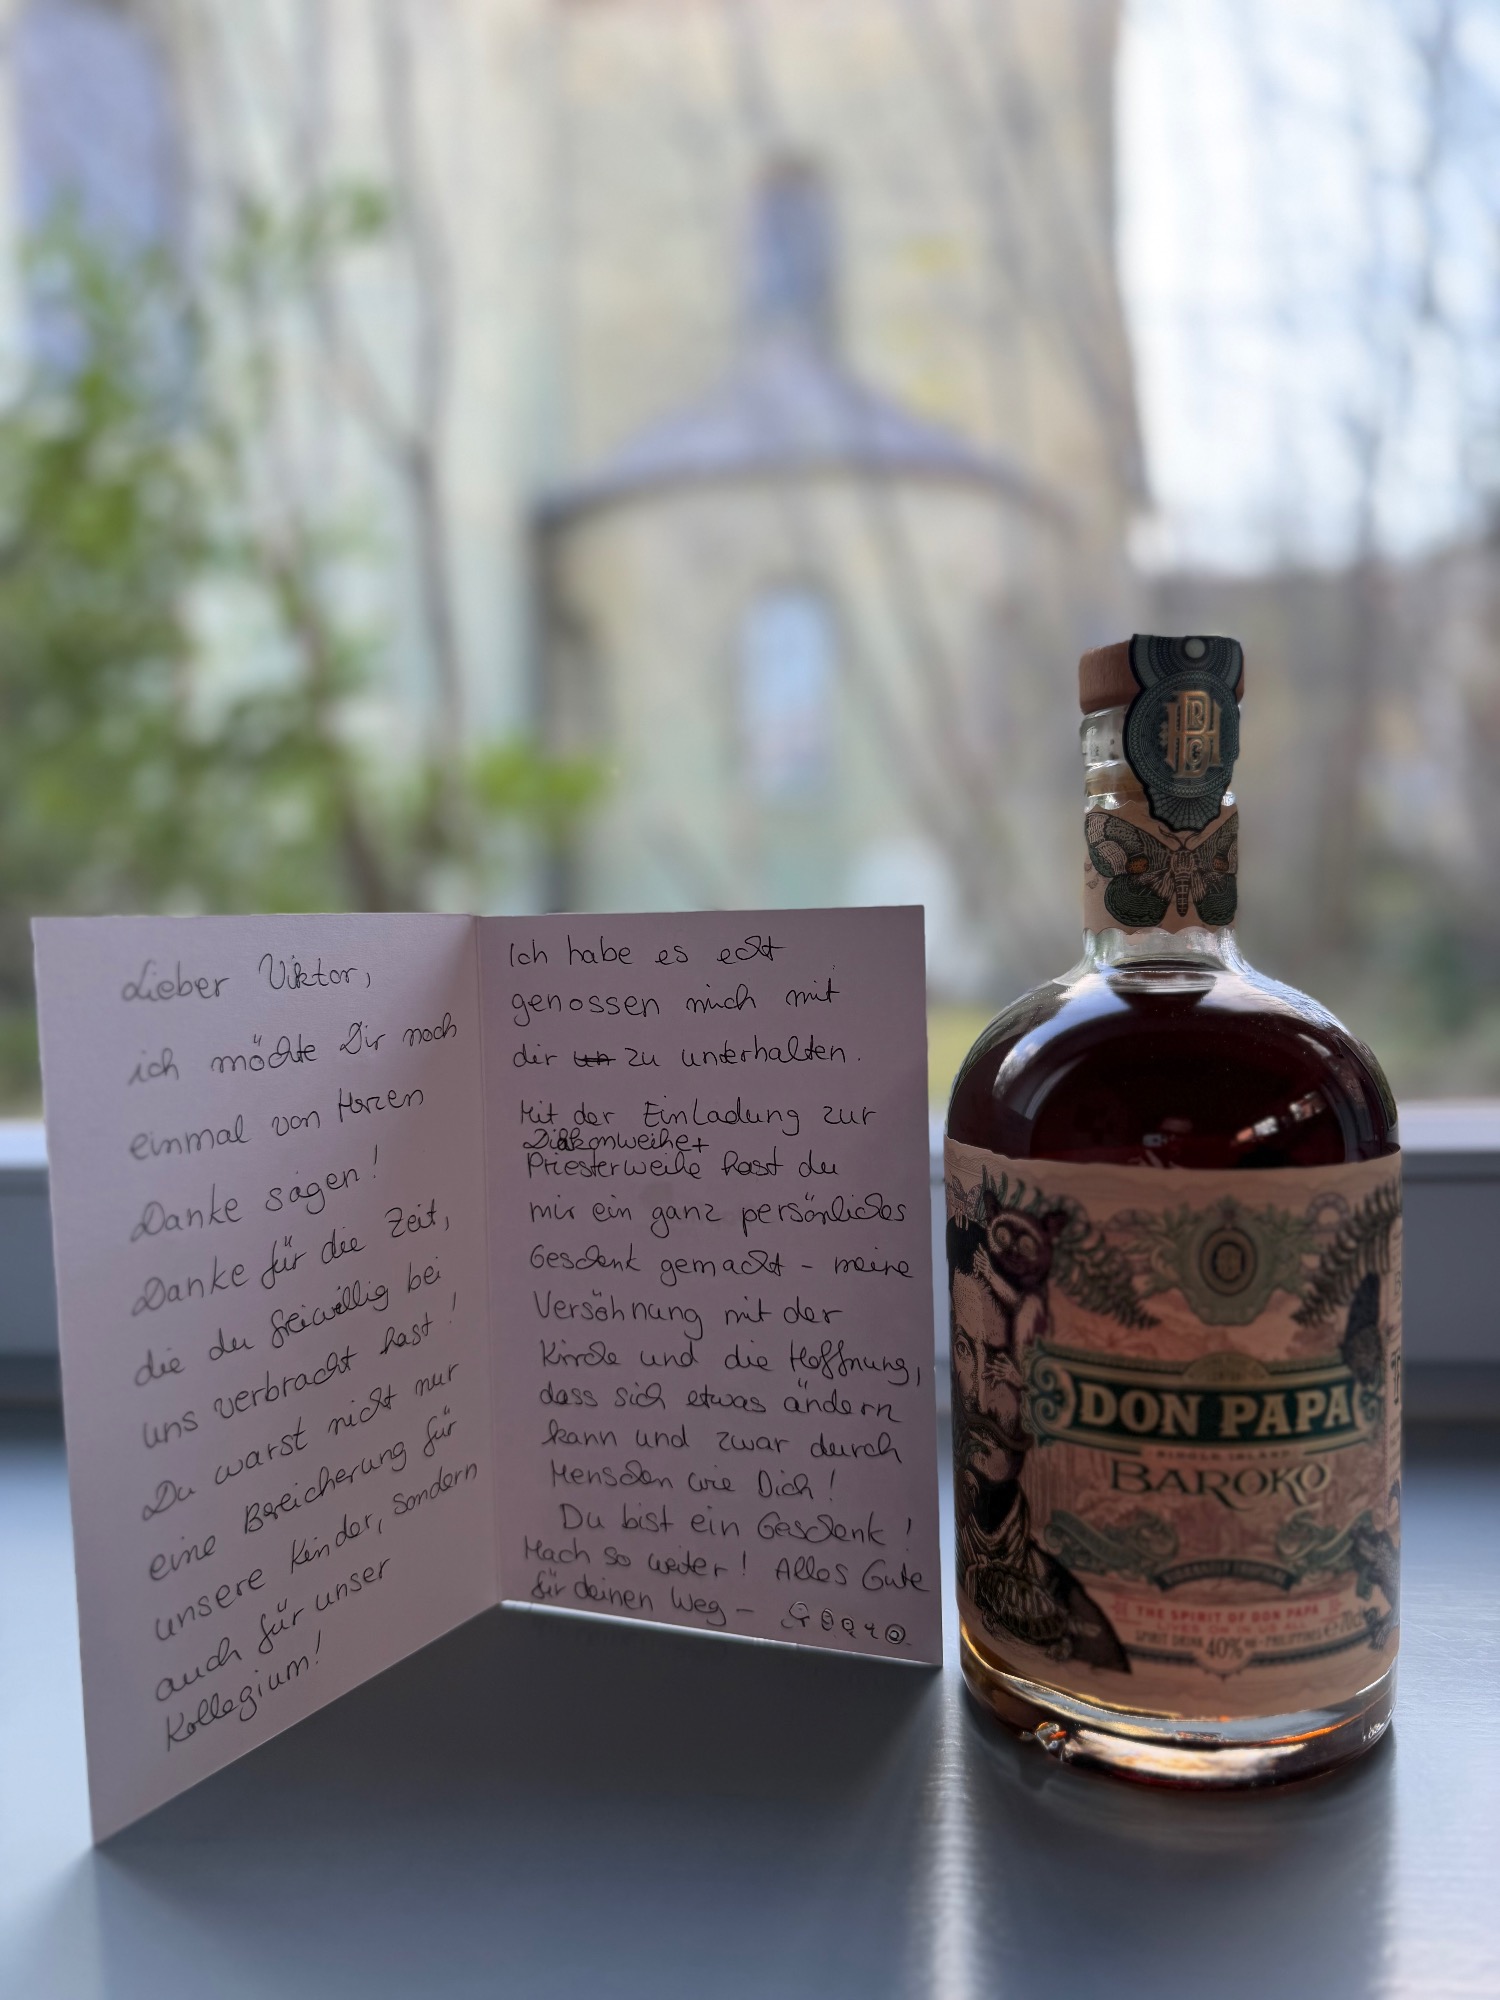 Lieber Viktor,
ich möchte Dir noch
einmal von Herzen
Danke sagen!
Danke für die Zeit,
die du freiwillig bei
uns verbracht hast!
Du warst nicht nur
eine Bereicherung für
unsere Kinder, sondern
auch für unser
Kollegium!
Ich habe es echt
genossen mich mit
dir zu unterhalten.
Mit der Einladung zur
Diakonweihe+
Priesterweihe hast du
mir ein ganz persönliches
Geschenk gemacht - meine
Versöhnung mit der
Kirche und die Hoffnung,
dass sich etwas ändern
kann und zwar durch
Menschen wie Dich!
Du bist ein Geschenk!
Mach so weiter! Alles Gute
für deinen Weg -
DON PAPA
SINGLE ISLAND
BAROKO
THE SPIRIT OF DON PAPA
LIVES ON IN US ALL
SPIRIT DRINK 40% PHILIPPINES 70cl